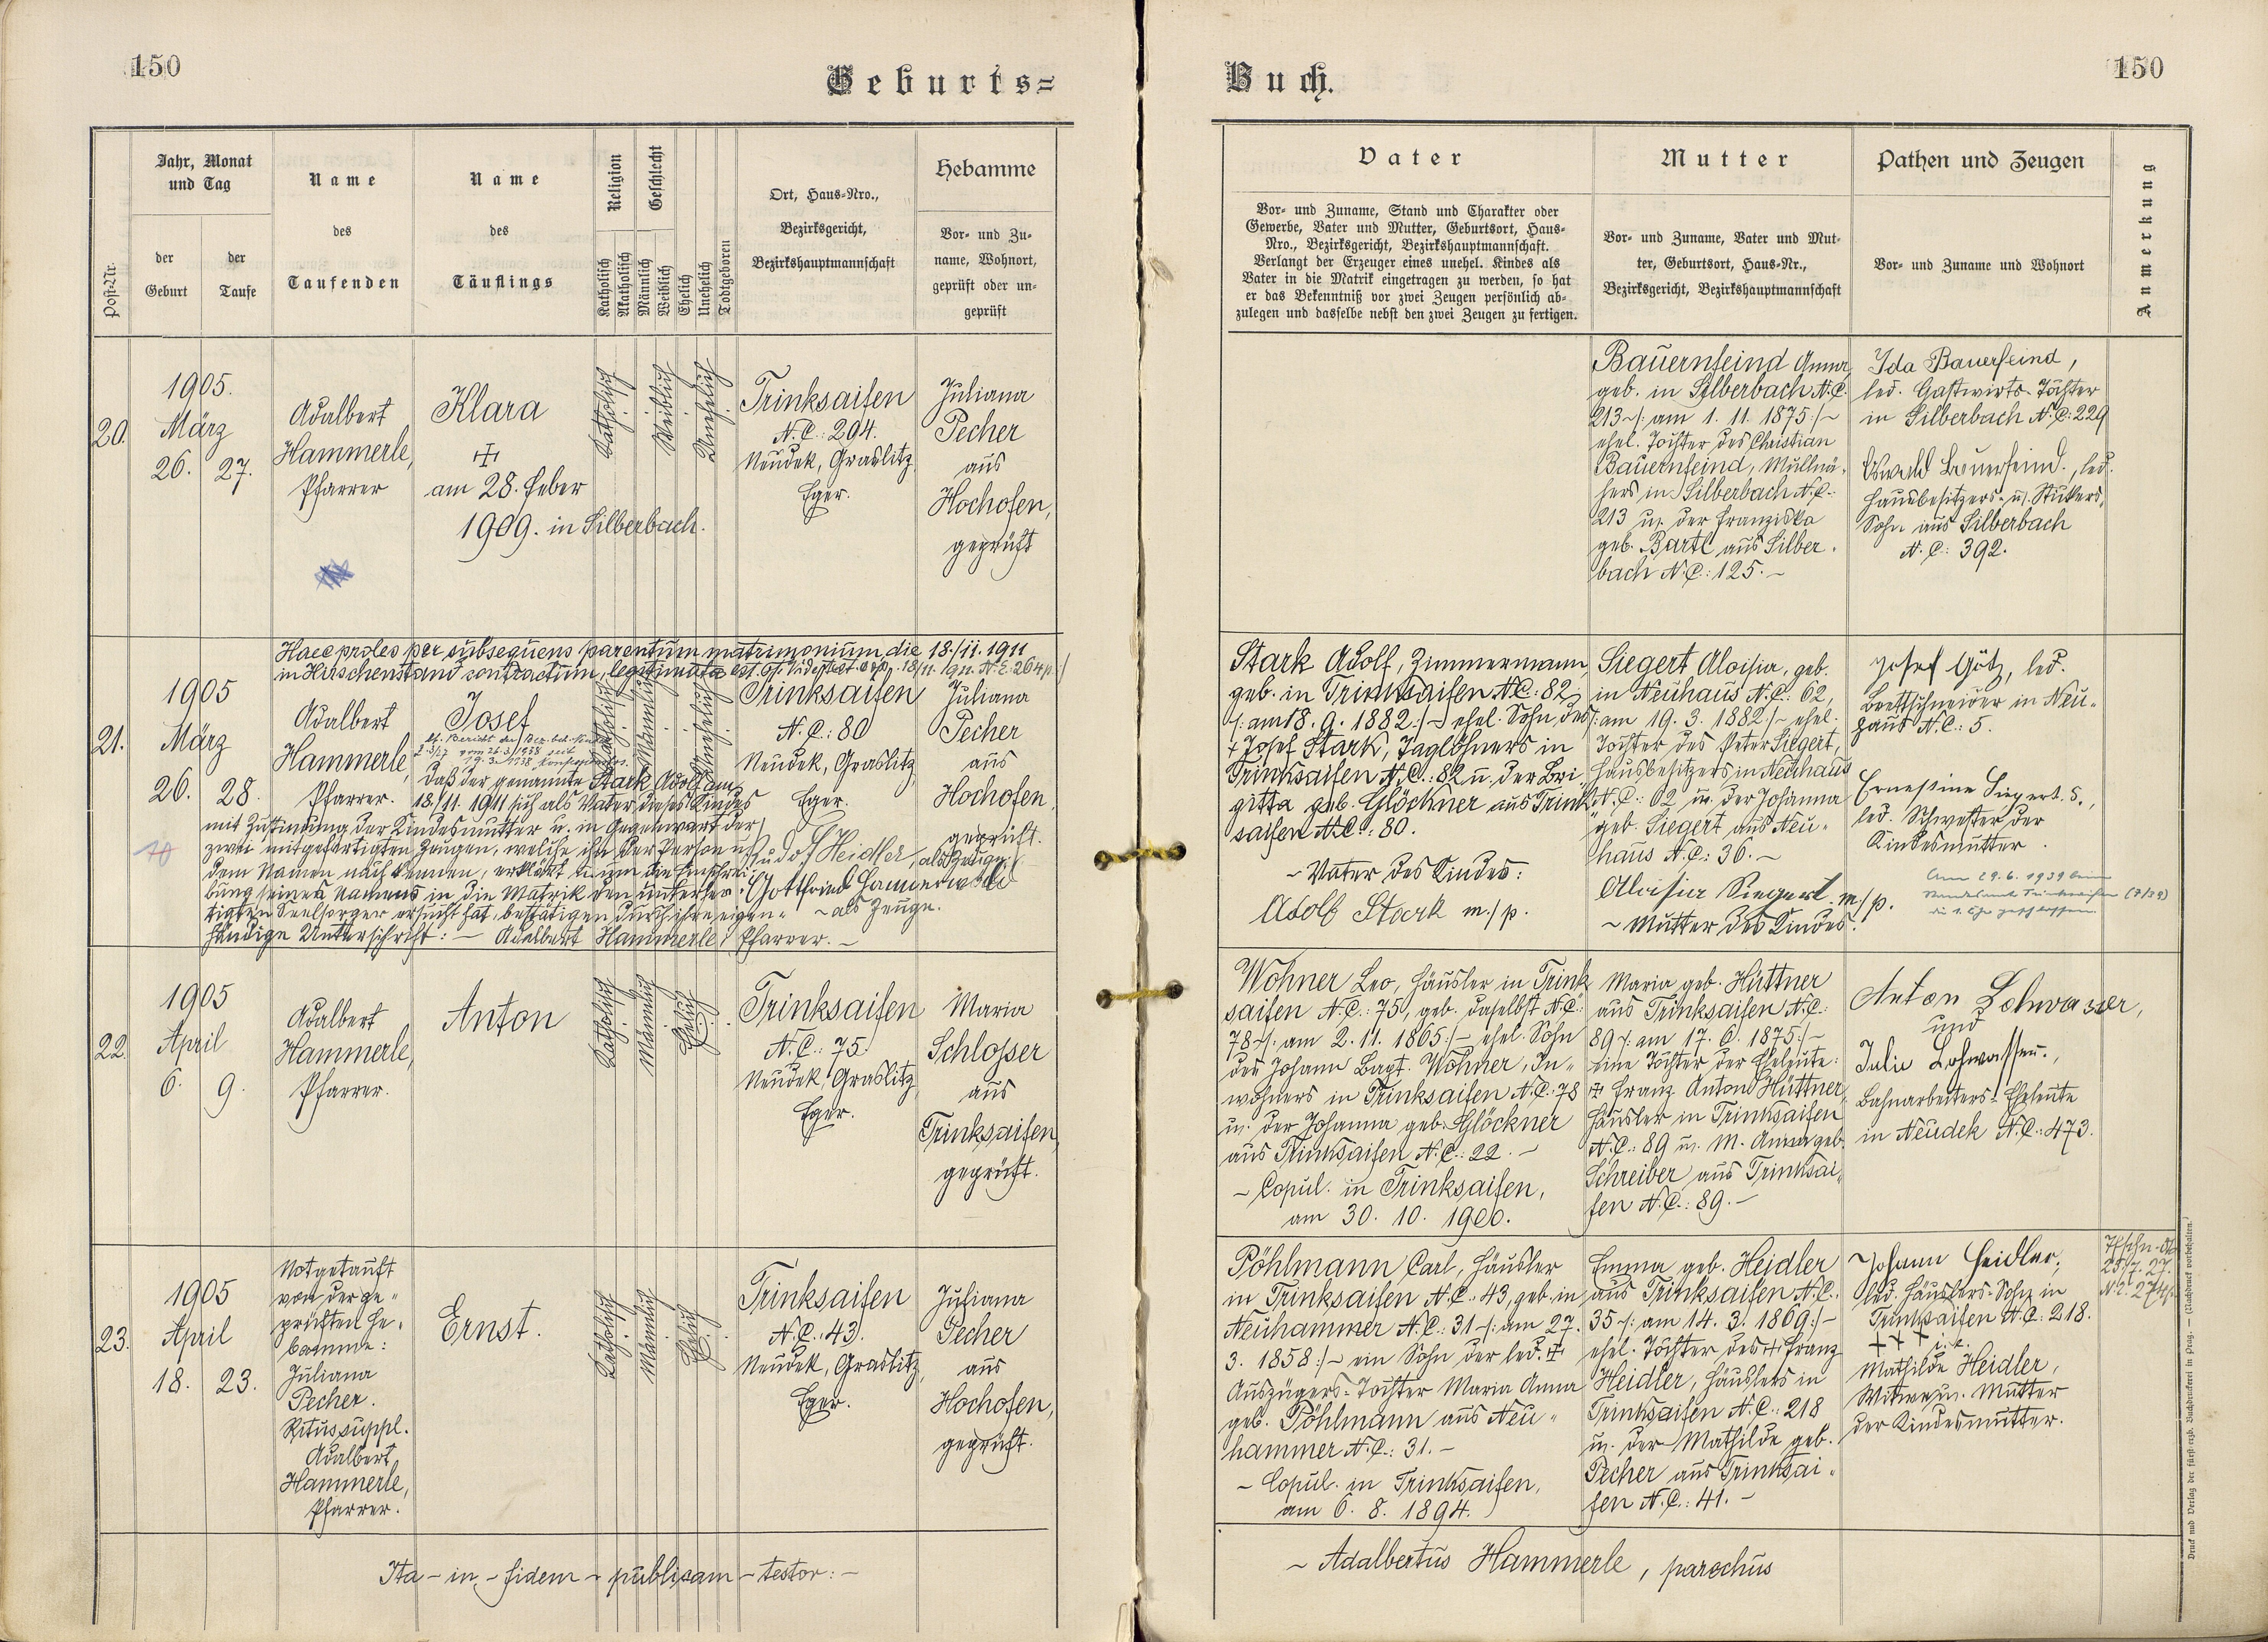 150
Geburts=
Jahr, Monat
und Tag
Name
des
Taufenden
Name
des
Täuflings
Religion
Geschlecht
Ort, Haus=Nro.,
Bezirksgericht,
Bezirkshauptmannschaft
Hebamme
Vor= und Zu=
name, Wohnort,
geprüft oder un=
geprüft
Post=Nr.
der
Geburt
der
Taufe
Katholisch
Akatholisch
Männlich
Weiblich
Ehelich
Unehelich
Todtgeboren
20.
1905.
März
26. 27.
Adalbert
Hammerle,
Pfarrer
Klara
am 28. Feber
1909. in Silberbach.
Katholisch
Weiblich
Unehelich
Trinksaifen
N.C.: 294.
Neudek, Graslitz
Eger.
Juliana
Pecher
aus
Hochofen,
geprüft
Haec proles per subsequens parentum matrimonium die 18./11. 1911
in Hirschenstand contractum, legitimata est.
21.
1905
März
26. 28.
Adalbert
Hammerle,
Pfarrer.
Josef
Katholisch
Männlich
Unehelich
Trinksaifen
N.C.: 80
Neudek, Graslitz
Eger.
Juliana
Pecher
aus
Hochofen,
geprüft.
Daß der genannte Stark Adolf am
18./11. 1911 sich als Vater dieses Kindes
mit Zustimung der Kindesmutter u. in Gegenwart der
zwei mitgefertigten Zeugen, welche ihn der Person u.
dem Namen nach kennen, erklärt u. um die Einschrei-
bung seines Namens in die Matrik den unterfer-
tigten Seelsorger ersucht hat, bestätigen durch ihre eigen-
händige Unterschrift: – Adalbert Hammerle, Pfarrer. –
Rudolf Heidler, als Zeuge.
Gottfried
– als Zeuge.
22.
1905
April
6. 9.
Adalbert
Hammerle,
Pfarrer.
Anton
Katholisch
Männlich
Ehelich
Trinksaifen
N.C.: 75.
Neudek, Graslitz
Eger.
Maria
Schlosser
aus
Trinksaifen,
geprüft.
23.
1905
April
18. 23.
Notgetauft
von der ge-
prüften He-
bamme:
Juliana
Pecher.
Ritus suppl.
Adalbert
Hammerle,
Pfarrer.
Ernst.
Katholisch
Männlich
Ehelich
Trinksaifen
N.C.: 43.
Neudek, Graslitz,
Eger.
Juliana
Pecher
aus
Hochofen,
geprüft.
Ita – in – fidem – publicam – testor: –
Buch.
150
Vater
Vor= und Zuname, Stand und Charakter oder
Gewerbe, Vater und Mutter, Geburtsort, Haus=
Nro., Bezirksgericht, Bezirkshauptmannschaft.
Verlangt der Erzeuger eines unehel. Kindes als
Vater in die Matrik eingetragen zu werden, so hat
er das Bekenntniß vor zwei Zeugen persönlich ab=
zulegen und dasselbe nebst den zwei Zeugen zu fertigen.
Mutter
Vor= und Zuname, Vater und Mut=
ter, Geburtsort, Haus=Nr.,
Bezirksgericht, Bezirkshauptmannschaft
Pathen und Zeugen
Vor= und Zuname und Wohnort
Anmerkung
Bauernfeind Anna
geb. in Silberbach N.C.
213 –/: am 1. 11. 1875 :/–
ehel. Tochter des Christian
Bauernfeind, Mussnä-
hers in Silberbach N.C.:
213 u. der Franziska
geb. Bartl aus Silber-
bach N.C.: 125. –
Ida Bauerfeind,
led. Gastwirts-Tochter
in Silberbach N.C.: 229
Oswald Bauerfeind, led.
Hausbesitzers- u. Stickers,
Sohn aus Silberbach
N.C.: 392.
Stark Adolf, Zimmermann,
geb. in Trinksaifen N.C.: 82
–/: am 18. 9. 1882 :/– ehel. Sohn des
+ Josef Stark, Taglöhners in
Trinksaifen N.C.: 82 u. der Bri-
gitta geb. Glöckner aus Trink-
saifen N.C.: 80.
– Vater des Kindes:
Adolf Stark m./p.
Siegert Aloisia, geb.
in Neuhaus N.C.: 62,
/: am 19. 3. 1882 :/– ehel.
Tochter des Peter Siegert,
Hausbesitzers in Neuhaus
N.C.: 62 u. der Johanna
geb. Siegert aus Neu-
haus N.C.: 36. –
Aloisia Siegert m/p.
– Mutter des Kindes.
Josef Götz, led.
Brettschneider in Neu-
haus N.C.: 5.
Ernestine Siegert,
led. Schwester der
Kindesmutter.
Am 29. 6. 1939 beim
Standesamt Trinksaifen (7/39)
die 1. Ehe geschlossen.
Wohner Leo, Häusler in Trink-
saifen N.C.: 75, geb. daselbst N.C.:
78 –/: am 2. 11. 1865 :/– ehel. Sohn
des Johann Bapt. Wohner, In-
wohners in Trinksaifen N.C.: 78
u. der Johanna geb. Glöckner
aus Trinksaifen N.C.: 22. –
– Copul. in Trinksaifen,
am 30. 10. 1900.
Maria geb. Hüttner
aus Trinksaifen N.C.:
89 –/: am 17. 6. 1875 :/–
eine Tochter der Eheleute:
Franz Anton Hüttner,
Häusler in Trinksaifen
N.C.: 89 u. M. Anna geb.
Schreiber aus Trinksai-
fen N.C.: 89. –
Anton Lohwasser,
und
Julie Lohwasser,
Bahnarbeiters-Eheleute
in Neudek N.C.: 473.
Pöhlmann Carl, Häusler
in Trinksaifen N.C.: 43, geb. in
Neuhammer N.C.: 31 –/: am 27.
3. 1858 :/– ein Sohn der led.
Auszügers-Tochter Maria Anna
geb. Pöhlmann aus Neu-
hammer N.C.: 31. –
– Copul. in Trinksaifen,
am 6. 8. 1894.
Emma geb. Heidler
aus Trinksaifen N.C.:
35 –/: am 14. 3. 1869 :/–
ehel. Tochter des Franz
Heidler, Häuslers in
Trinksaifen N.C.: 218
u. der Mathilde geb.
Pecher aus Trinksai-
fen N.C.: 41. –
Johann Heidler,
led. Häuslers-Sohn in
Trinksaifen N.C.: 218.
+ + +
Mathilde Heidler,
Witwe u. Mutter
der Kindesmutter.
– Adalbertus Hammerle, parochus
Druck und Verlag der fürst=erzb. Buchdruckerei in Prag. — (Nachdruck vorbehalten.)